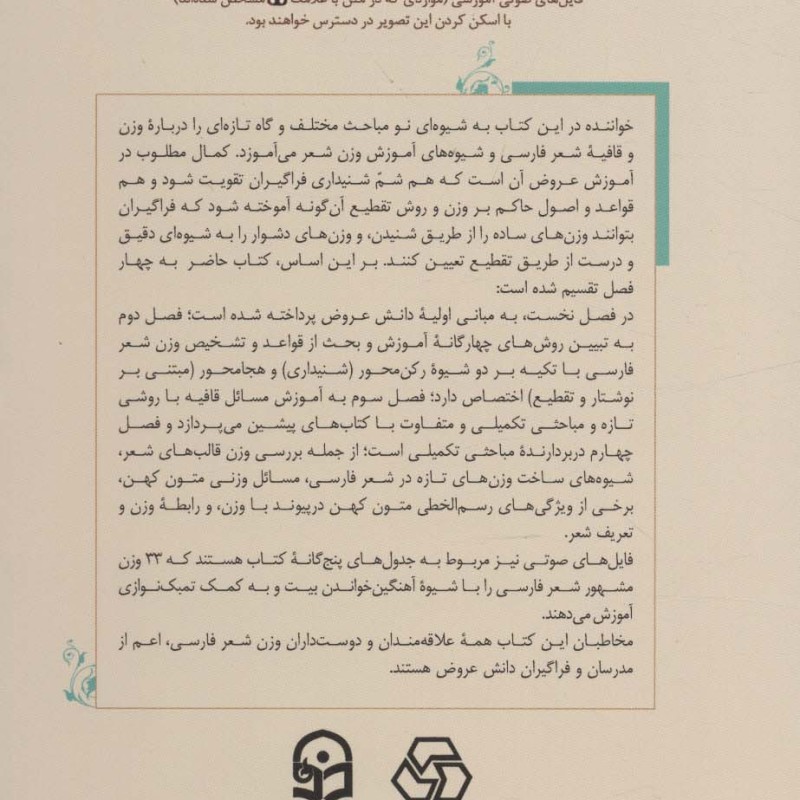 فایل‌های صوتی آموزشی (مواردی که در متن با علامت مشخص شده‌اند)
با اسکن کردن این تصویر در دسترس خواهند بود.
خواننده در این کتاب به شیوه‌ای نو مباحث مختلف و گاه تازه‌ای را دربارهٔ وزن
و قافیهٔ شعر فارسی و شیوه‌های آموزش وزن شعر می‌آموزد. کمال مطلوب در
آموزش عروض آن است که هم شمّ شنیداری فراگیران تقویت شود و هم
قواعد و اصول حاکم بر وزن و روش تقطیع آن‌گونه آموخته شود که فراگیران
بتوانند وزن‌های ساده را از طریق شنیدن، و وزن‌های دشوار را به شیوه‌ای دقیق
و درست از طریق تقطیع تعیین کنند. بر این اساس، کتاب حاضر به چهار
فصل تقسیم شده است:
در فصل نخست، به مبانی اولیهٔ دانش عروض پرداخته شده است؛ فصل دوم
به تبیین روش‌های چهارگانهٔ آموزش و بحث از قواعد و تشخیص وزن شعر
فارسی با تکیه بر دو شیوهٔ رکن‌محور (شنیداری) و هجامحور (مبتنی بر
نوشتار و تقطیع) اختصاص دارد؛ فصل سوم به آموزش مسائل قافیه با روشی
تازه و مباحثی تکمیلی و متفاوت با کتاب‌های پیشین می‌پردازد و فصل
چهارم دربردارندهٔ مباحثی تکمیلی است؛ از جمله بررسی وزن قالب‌های شعر،
شیوه‌های ساخت وزن‌های تازه در شعر فارسی، مسائل وزنی متون کهن،
برخی از ویژگی‌های رسم‌الخطی متون کهن درپیوند با وزن، و رابطهٔ وزن و
تعریف شعر.
فایل‌های صوتی نیز مربوط به جدول‌های پنج‌گانهٔ کتاب هستند که ۳۳ وزن
مشهور شعر فارسی را با شیوهٔ آهنگین‌خواندن بیت و به کمک تمبک‌نوازی
آموزش می‌دهند.
مخاطبان این کتاب همهٔ علاقه‌مندان و دوست‌داران وزن شعر فارسی، اعم از
مدرسان و فراگیران دانش عروض هستند.